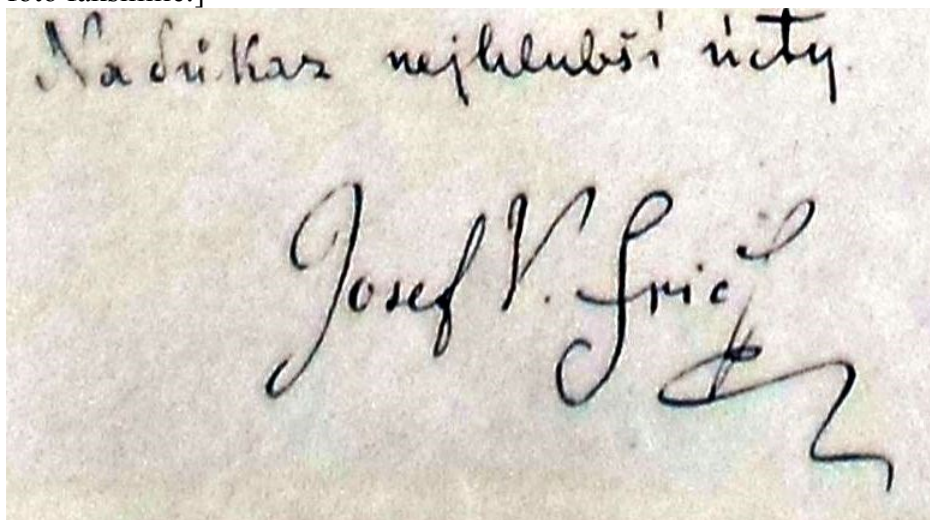 Na důkaz nejhlubší úcty.
Josef V. Frič